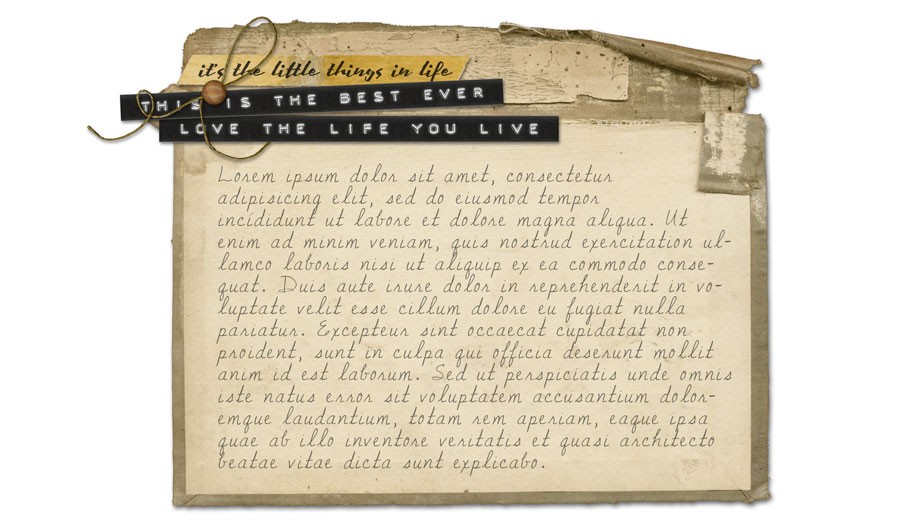 it's the little things in life
THIS IS THE BEST EVER
LOVE THE LIFE YOU LIVE
Lorem ipsum dolor sit amet, consectetur
adipisicing elit, sed do eiusmod tempor
incididunt ut labore et dolore magna aliqua. Ut
enim ad minim veniam, quis nostrud exercitation ul-
lamco laboris nisi ut aliquip ex ea commodo conse-
quat. Duis aute irure dolor in reprehenderit in vo-
luptate velit esse cillum dolore eu fugiat nulla
pariatur. Excepteur sint occaecat cupidatat non
proident, sunt in culpa qui officia deserunt mollit
anim id est laborum. Sed ut perspiciatis unde omnis
iste natus error sit voluptatem accusantium dolor-
emque laudantium, totam rem aperiam, eaque ipsa
quae ab illo inventore veritatis et quasi architecto
beatae vitae dicta sunt explicabo.